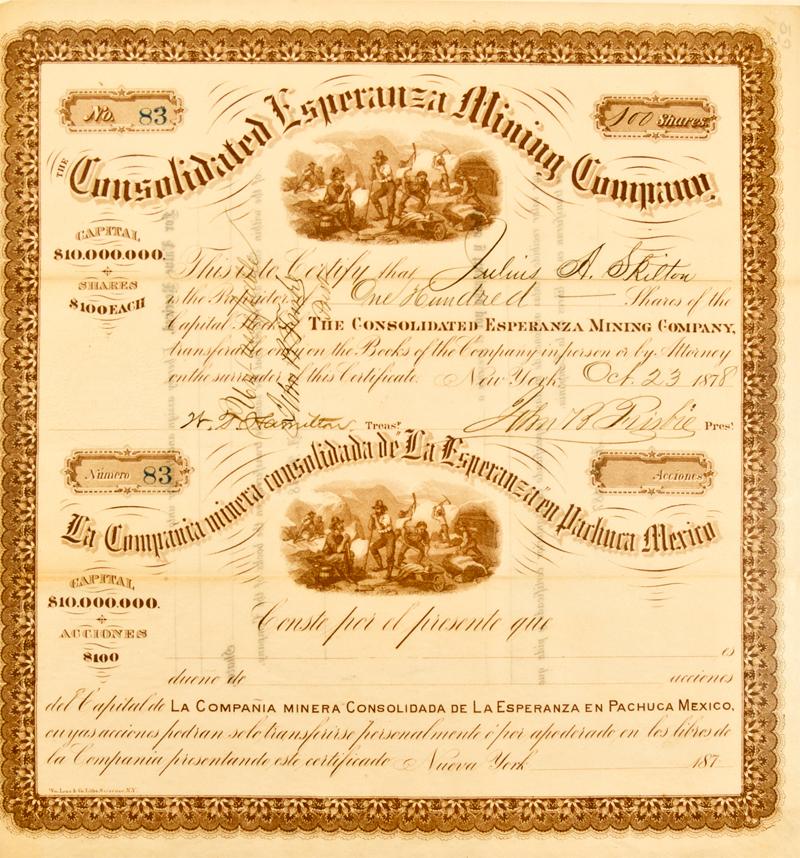 No. 83
100 Shares.
THE Consolidated Esperanza Mining Company,
CAPITAL
$10.000.000.
SHARES
$100 EACH
This is to Certify that Julius A. Skilton
is the Proprietor of One Hundred Shares of the
Capital Stock of THE CONSOLIDATED ESPERANZA MINING COMPANY,
transferable only on the Books of the Company in person or by Attorney
on the surrender of this Certificate. New York, Oct. 23 1878
W. F. Hamilton Treasr.
John B Frisbie Prest.
Número 83
Acciones
La Compania minera consolidada de La Esperanza en Pachuca Mexico
CAPITAL
$10.000.000.
ACCIONES
$100
Conste por el presente que
es
dueno de acciones
del Capital de LA COMPAÑIA MINERA CONSOLIDADA DE LA ESPERANZA EN PACHUCA MEXICO,
cuyas acciones podran solo transferirse personalmente ó por apoderado en los libros de
la Compania presentando este certificado Nueva York 187